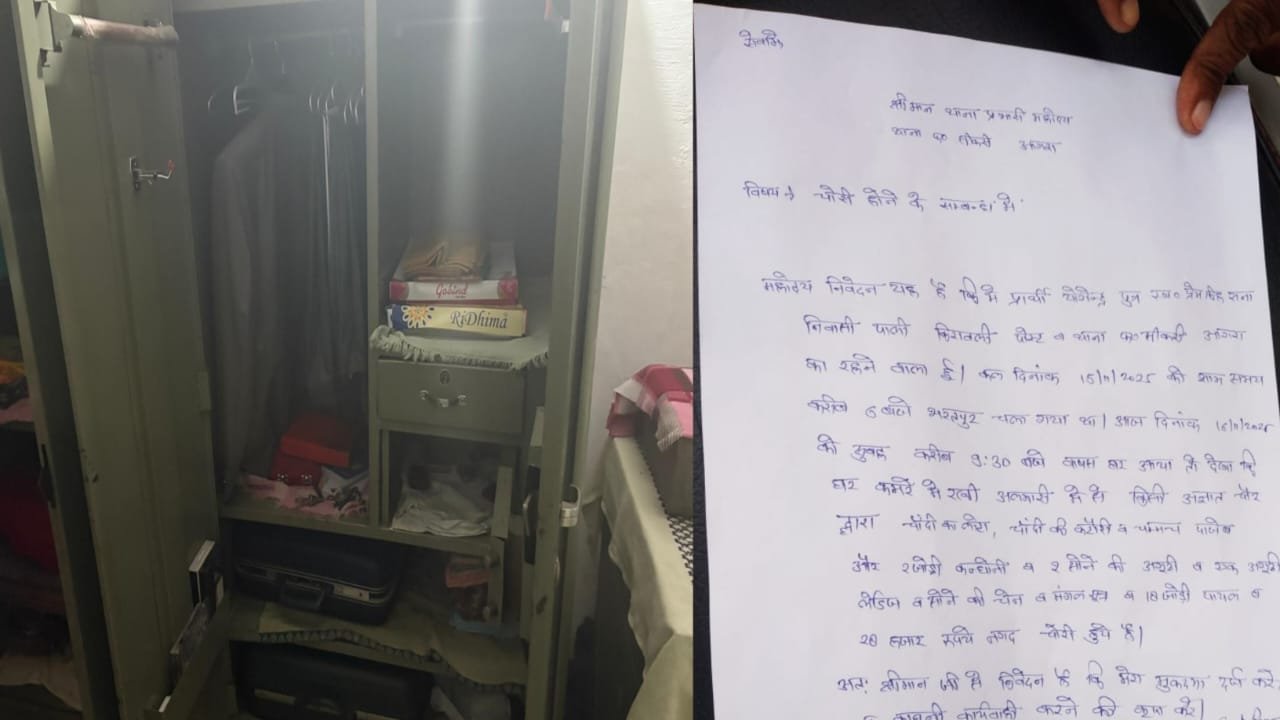 Gobind
RiDhima
सेवामें
श्रीमान थाना प्रभारी महोदय
थाना फ0 सीकरी आगरा
विषय चोरी होने के सम्बन्ध में
महोदय निवेदन यह है कि मैं प्रार्थी योगेन्द्र पुत्र स्व0 प्रेम सिंह
निवासी पाली किरावली पोस्ट व थाना फ0 सीकरी आगरा
का रहने वाला हूँ। कल दिनांक 15/11/2025 की शाम समय
करीब 6 बजे भरतपुर चला गया था। आज दिनांक 16/11/2025
की सुबह करीब 9:30 बजे वापस घर आया तो देखा कि
घर कमरे में रखी अलमारी में से किसी अज्ञात चोर
द्वारा चाँदी का चाँदी की कटोरी व चम्मच पाजेब
और व 2 सोने की अंगूठी व एक अंगूठी
लेडिज व सोने की चेन व मंगलसूत्र व 18 जोड़ी पायल व
28 हजार रुपये नगद चोरी हुये है।
अतः श्रीमान जी से निवेदन है कि मेरा मुकदमा दर्ज कर
कानूनी कार्यवाही करने की कृपा करें।